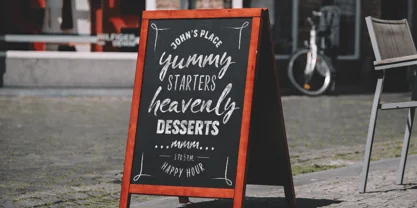 JOHN'S PLACE
yummy
STARTERS
heavenly
DESSERTS
...mmm...
HAPPY HOUR